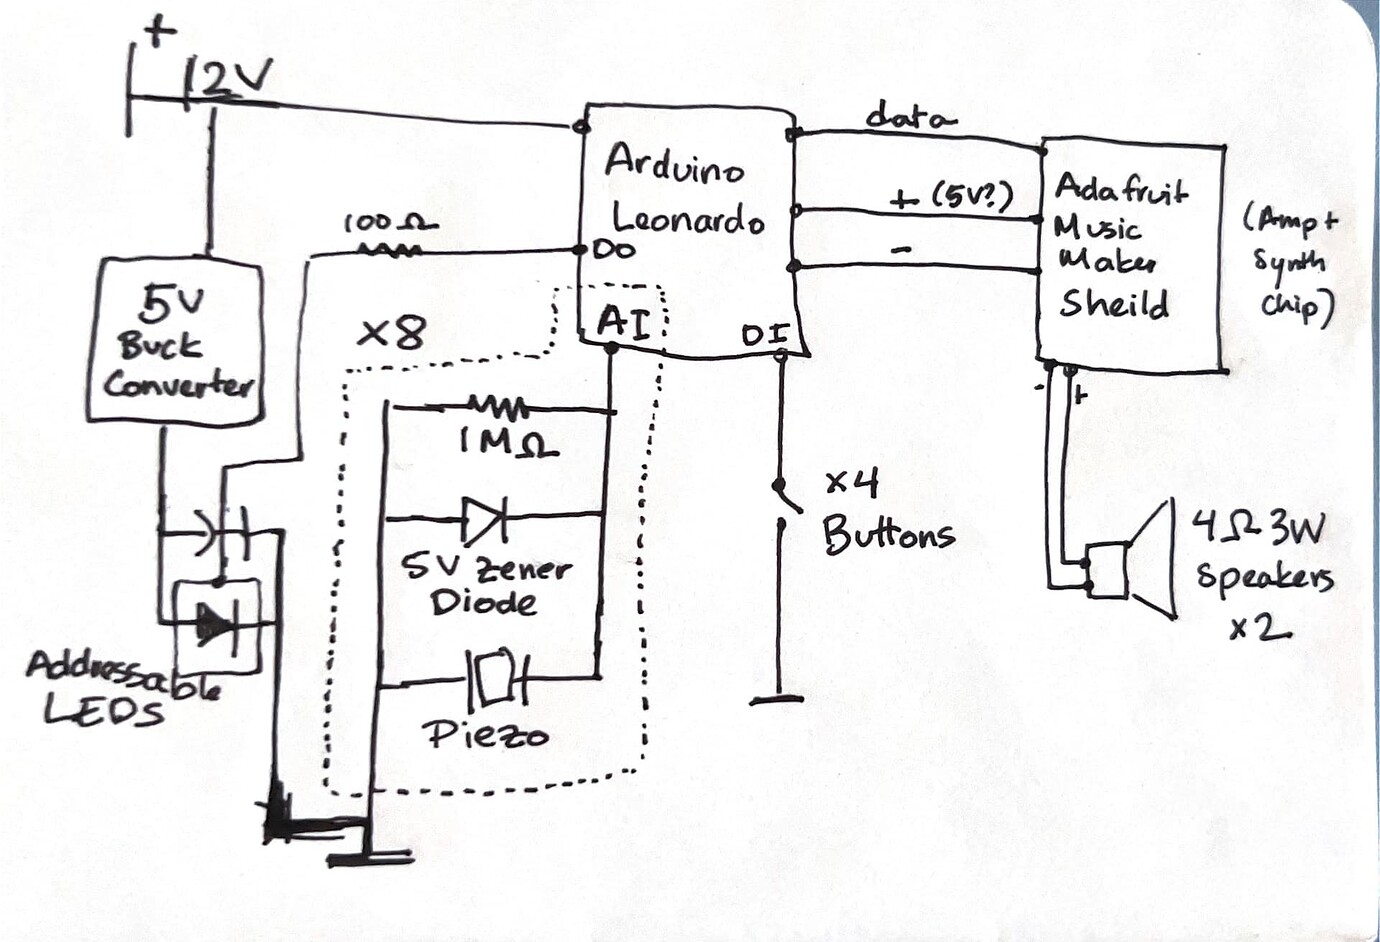 +
12V
data
Arduino
Leonardo
+ (5V?)
-
Adafruit
Music
Maker
Sheild
(Amp+
Synth
chip)
100Ω
DO
5V
Buck
Converter
x8
AI
DI
- +
1MΩ
5V Zener
Diode
Piezo
x4
Buttons
4Ω 3W
Speakers
x2
Addressable
LEDS